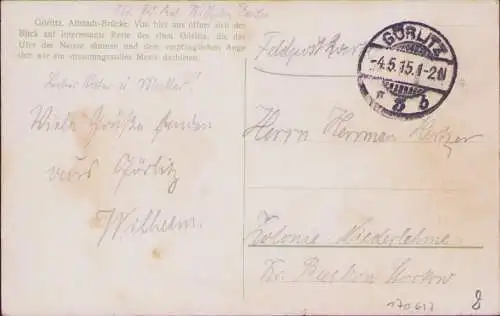 Görlitz, Altstadt-Brücke. Von hier aus öffnet sich der
Blick auf interessante Reste des alten Görlitz, die das
Ufer der Neisse säumen und dem empfänglichen Auge
sich wie ein stimmungsvolles Mosaik darbieten.
Wilhelm
Feldpost
GÖRLITZ
-4.5.15.1-2N
* b
Lieber Vater u Mutter!
Viele Grüße senden
aus Görlitz
Wilhelm.
Herrn Herrman
Kolonie Niederlehme
Kr. Beeskow Storkow
170617
8